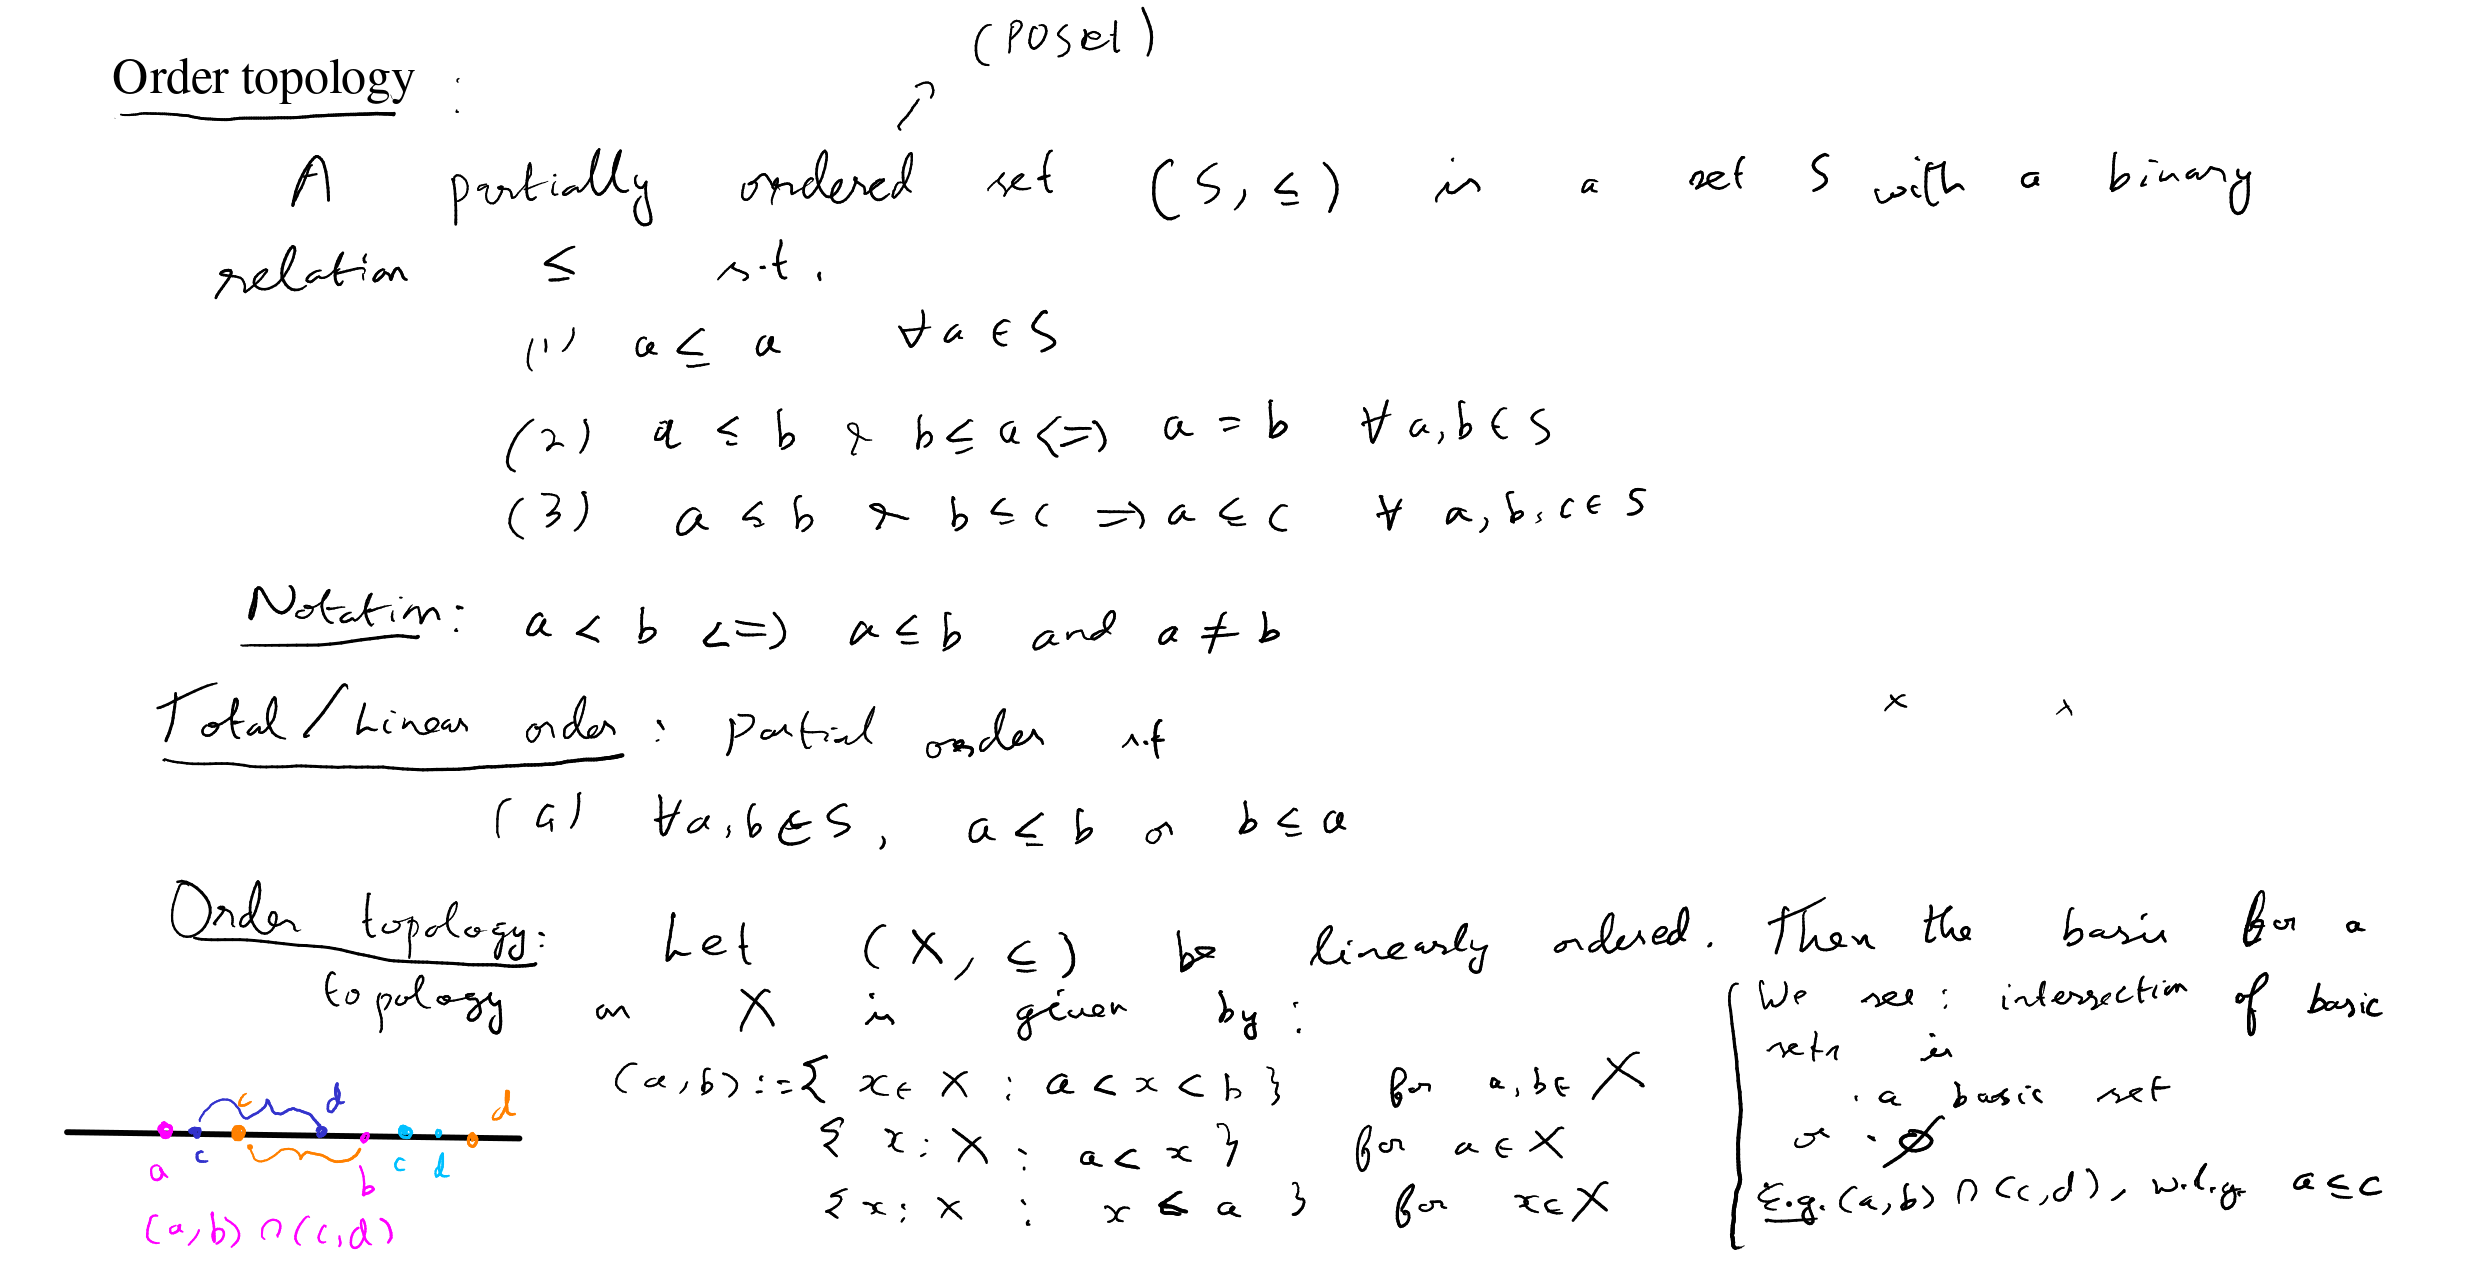 (POSet)
Order topology :
A partially ordered set (S, ≤) is a set S with a binary
relation ≤ s.t.
(1) a ≤ a ∀ a ∈ S
(2) a ≤ b & b ≤ a <=> a = b ∀ a, b ∈ S
(3) a ≤ b & b ≤ c => a ≤ c ∀ a, b, c ∈ S
Notation: a < b <=> a ≤ b and a ≠ b
Total / Linear order : Partial order s.t
(4) ∀ a, b ∈ S, a ≤ b or b ≤ a
Order topology: Let (X, ≤) be linearly ordered. Then the basis for a
topology on X is given by :
(a, b) := { x ∈ X : a < x < b } for a, b ∈ X
{ x : X : a < x } for a ∈ X
{ x : X : x < a } for x ∈ X
We see : intersection of basic
sets is
· a basic set
or · ∅
E.g. (a, b) ∩ (c, d), w.l.g. a ≤ c
c d d
a c b c d
(a, b) ∩ (c, d)